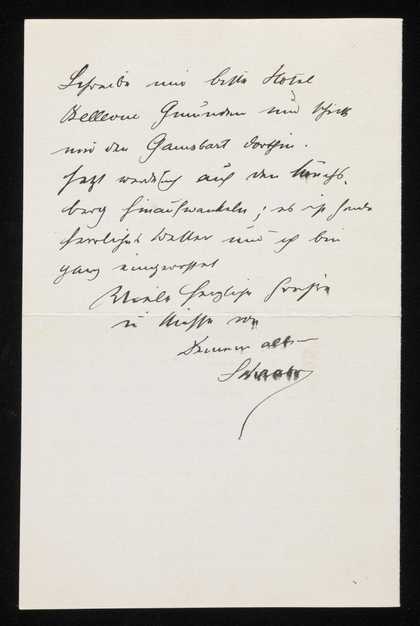 Schreibe mir bitte Hotel
Bellevue Gmunden und schick
mir den Gamsbart dorthin.
Jetzt werde ich auf den Mönchs-
berg hinaufwackeln; es ist heute
herrliches Wetter und ich bin
ganz eingerostet
Viele herzliche Grüsse
u Küsse von
Deinem alten